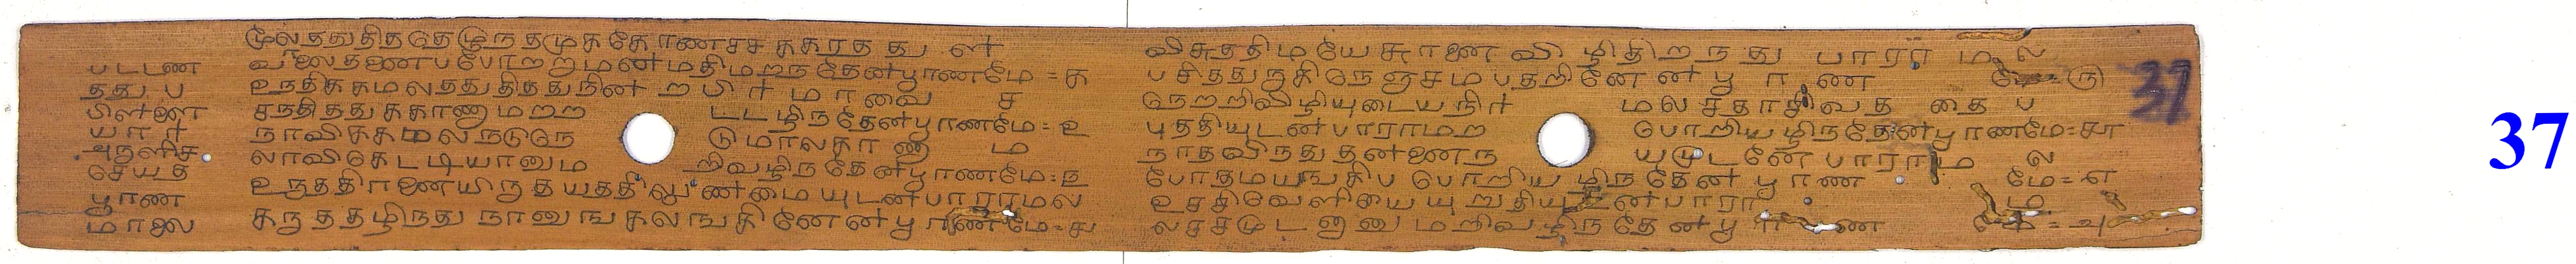 படடண
தது ப
பிள்ளை
யார்
அருளிச
செயத
பூரண
மாலை
மூலத்துதிதெழுந்தமுககோணச்சககரதது ள்
வாலைதனைபபோறறாமன்மதிமறநதேன்பூரணமே = க
உநதிககமலத்துதித்துநின் ற பிர்மாவை ச
சநதித்துககாணாமறற டடழிநதேன்பூரணமே = உ
நாவிககமலநடுநெ டுமாலகாணா ம
லாவிகெடடியானும றிவழிநதேன்பூரணமே =
உருததிரனையிருதயத்திலுண்மையுடன்பாராமல
கருத்தழிநது நானுங்கலங்கினேன்பூரணமே = ச
விசுததிமயேசுரனை விழிதிறநது பாரா மல
பசித்துருகிநெஞ்சமபதறினேன்பூரண மே = ரு
நெறறிவிழியுடையநிர் மலசதாசிவத தை ப
புத்தியுடன்பாராமற பொறியழிநதேன்பூரணமே = சு
நாதவிநதுதன்னைந யமுடனேபாராம ல
போதமயங்கிப பொறியழிநதேன்பூரண மே = எ
உச்சிவெளியையுறுதியுடன்பாரா ம
லச்சமுடனானுமறிவழிநதேன்பூரண மே = அ
37
37